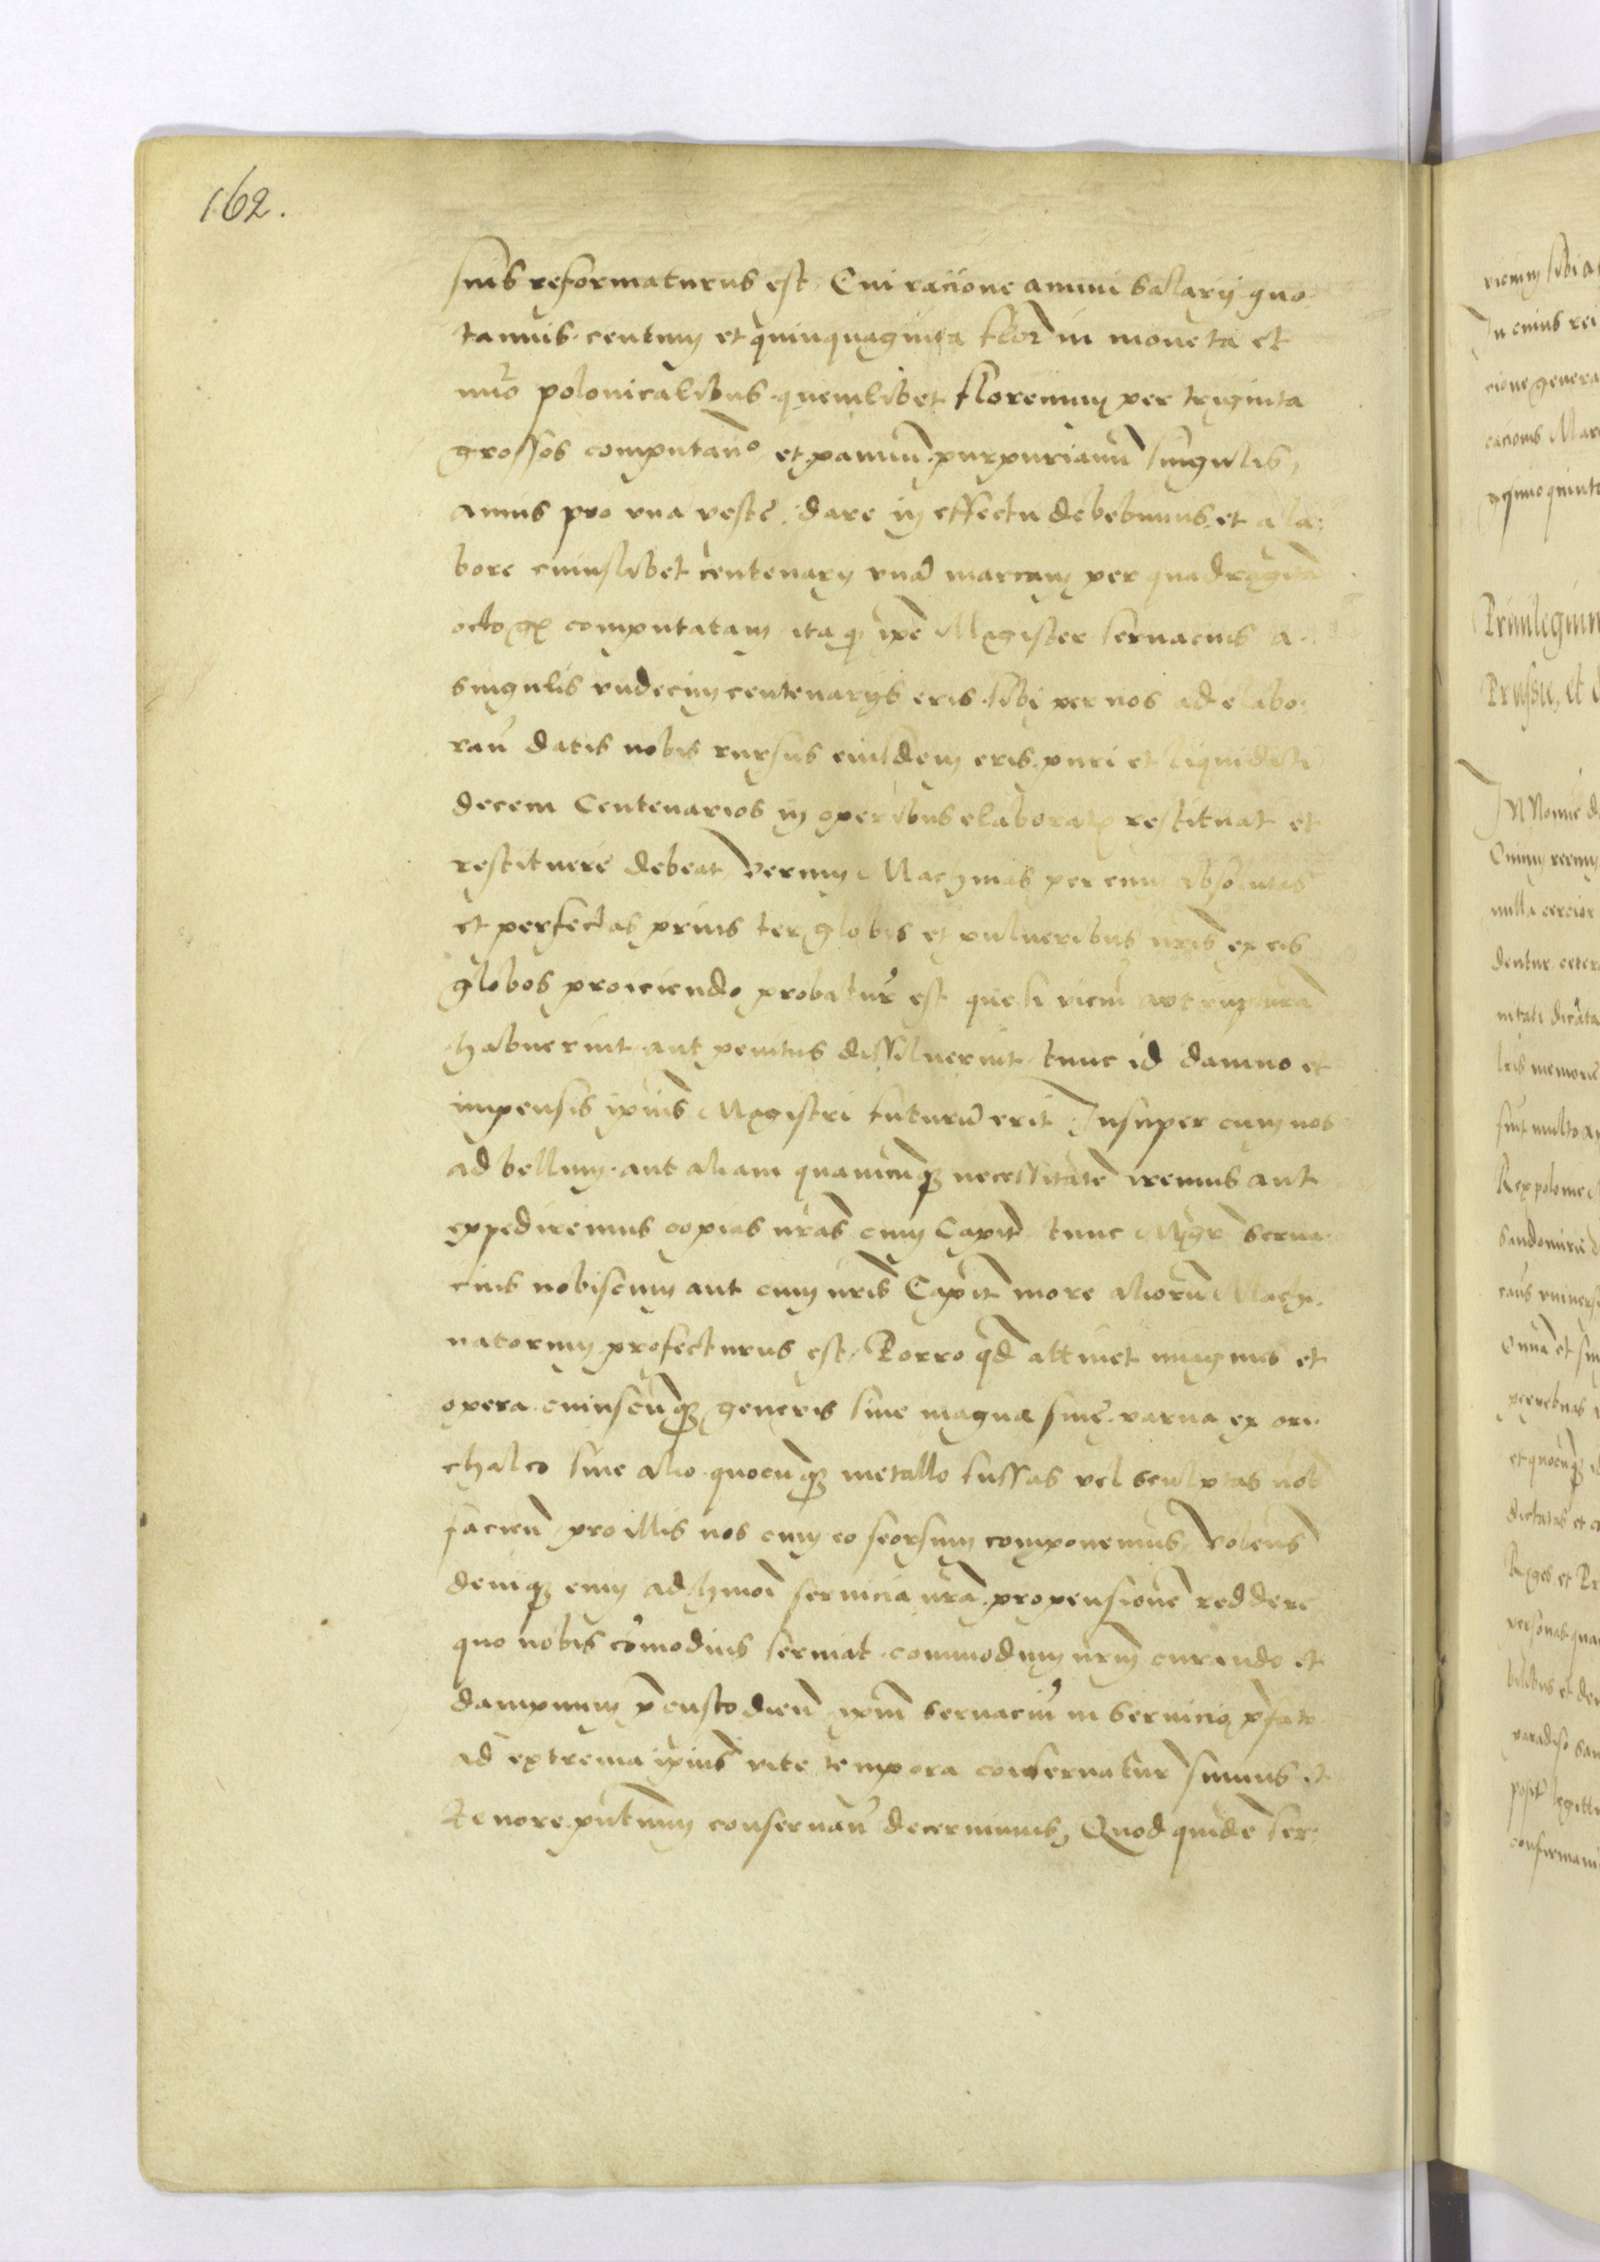 162.
suis reformaturus est, Cui racione annui salarij quo
tannis centum et quinquaginta flor in moneta et
nro polonicalibus quemlibet florenum per triginta
grossos computando et pannum purpurianum singulis
annis pro una veste dare in effectu debebimus, et a la:
bore cuiuslibet centenarij unam marcam per quadraginta
octo gr computatam ita q ipe Magister Servacius a
singulis undecim centenarijs eris sibi per nos ad elabo:
ran datis nobis rursus eiusdem eris puri et liquidati
decem Centenarios in operibus elaborat restituat et
restituere debeat, verum Machinas per eum absolutas
et perfectas prius ter globis et pulveribus nris ex eis
globos proiciendo probatur est que si vicium aut rupturam
habuerint aut penitus dissiluerint tunc id damno et
impensis ipius Magistri futurum erit, Insuper cum nos
ad bellum aut aliam quamcunq necessitatem iremus aut
expediremus copias nras cum Capit tunc Mgr Serva
cius nobiscum aut cum nris Capit more aliorum Machi
natorum profecturus est, Porro qd attinet imagines et
opera cuiuscunq generis sive magna sive parva ex ori
chalco sive alio quocunq metallo fussas vel sculptas nob
facien, pro illis nos cum eo seorsum componemus, Volens
deniq eum ad hmoi servicia nra propensionem reddere
quo nobis comodius serviat commodum nrm curando et
dampnum pcustodien ipm Servacium in servicio pfato
ad extrema ipius vite tempora conservatur sumus et
tenore pntium conservan decernimus, Quod quidem ser:
vicium sibi a
In cuius rei
cione genera
Mar
quinto
Privilegium
Prussie, et
In Nomie d
Omnium rerum
nulla cercior
dentur cetera
lris memorie
sint multo a
Rex polonie
Sandomirie
univers
Omnia et sin
et quocunq
Reges et Pr
personas qua
bilibus et de
paradiso san
posit legitti
confirmani